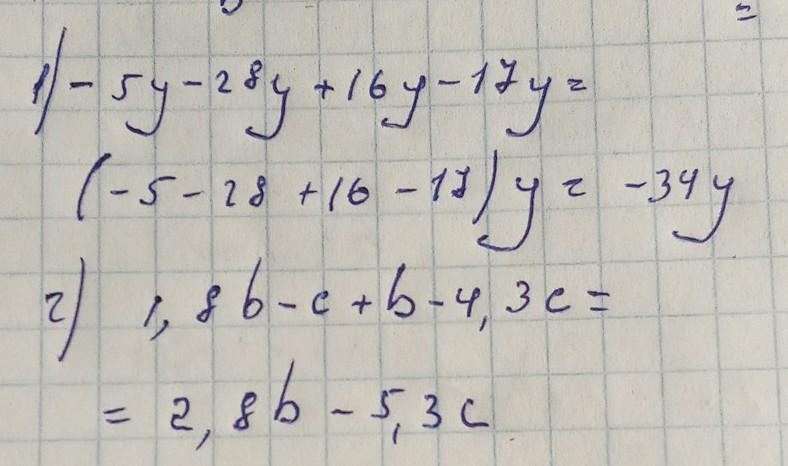 =
1) - 5y - 28y + 16y - 17y =
(-5 - 28 + 16 - 17)y = -34y
2) 1,8b - c + b - 4,3c =
= 2,8b - 5,3c